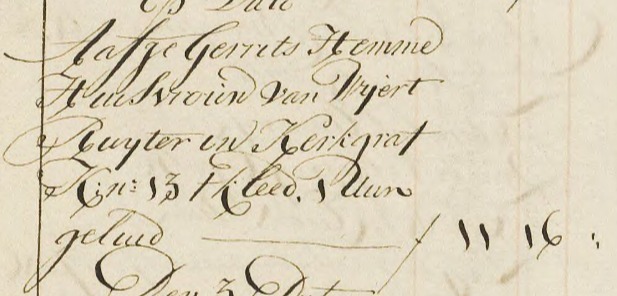 Aafje Gerrits Hemme
Huisvrouw van Wijert
Ruyter in Kerkgraf
K: n: 13 Kleed. 1 Uur
geluid — f 11 16 :
Den 3 D